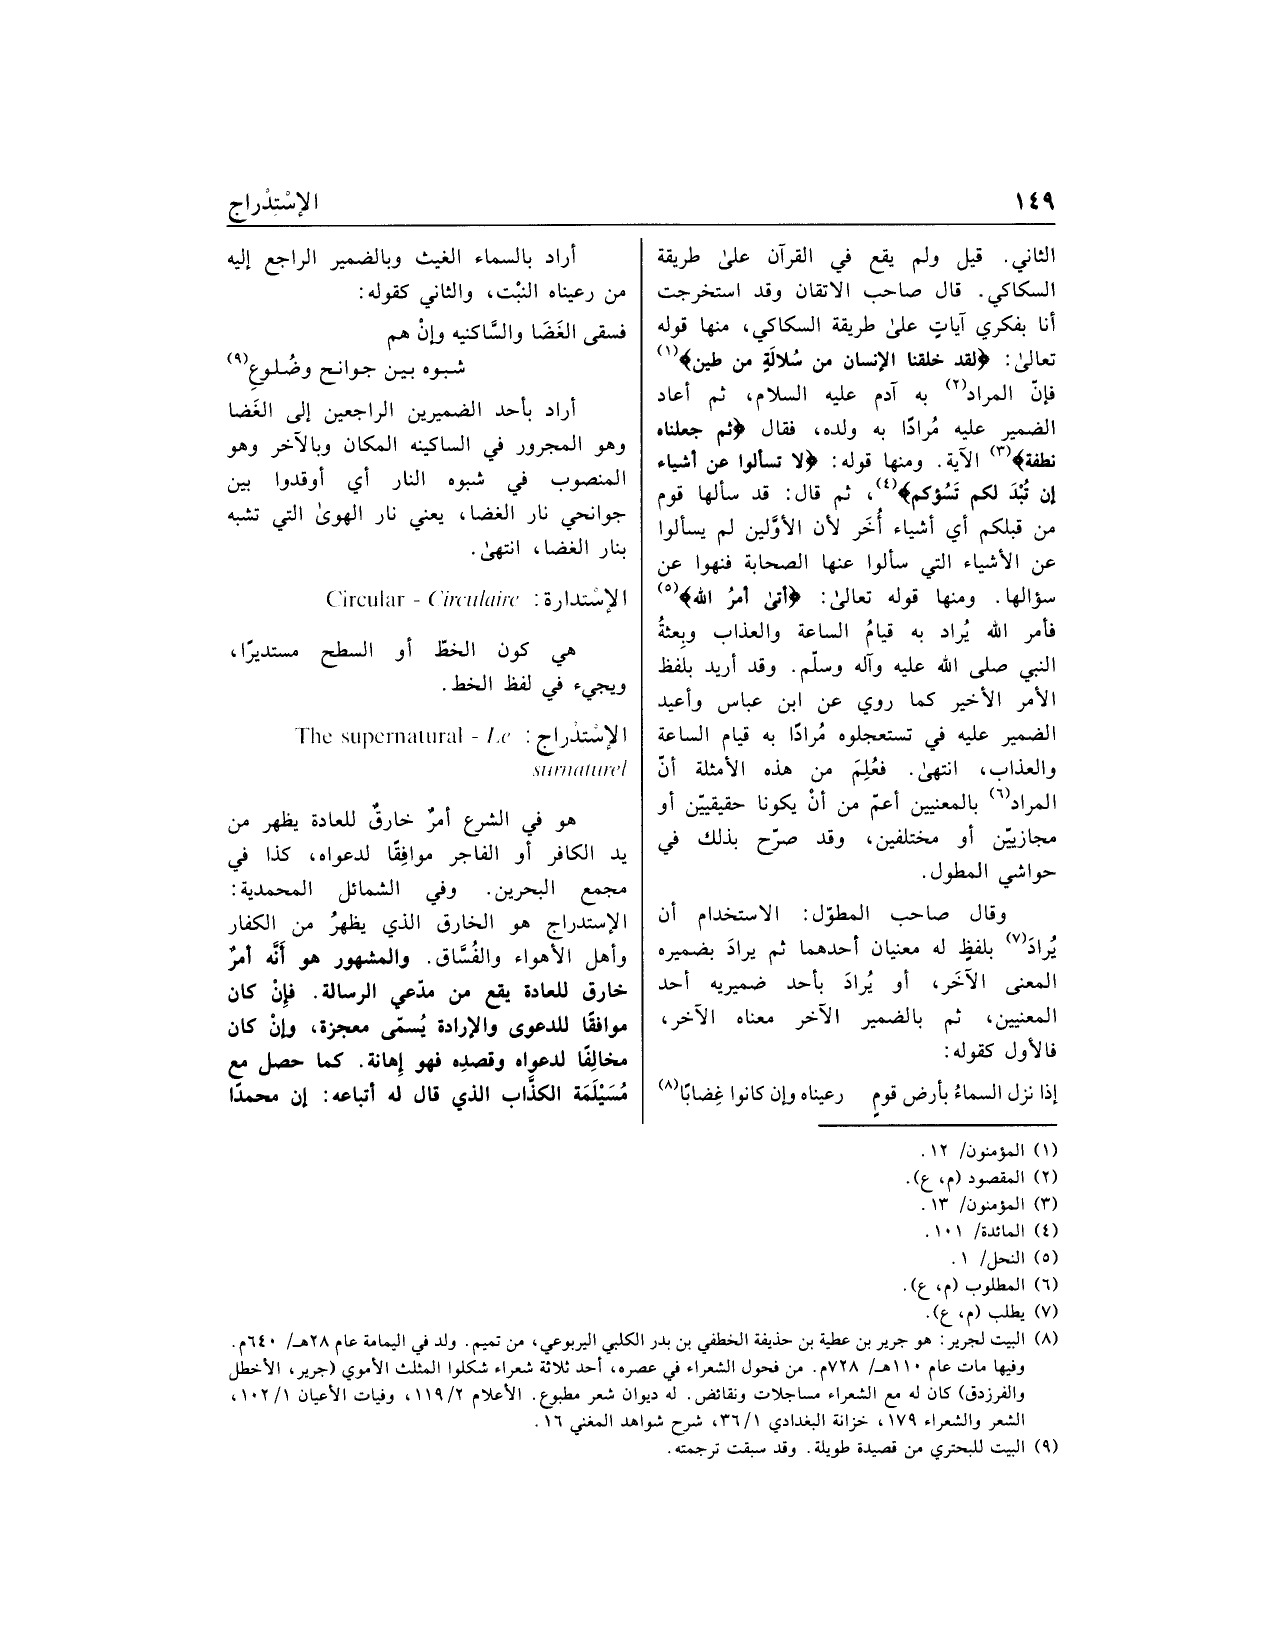 ١٤٩
الإسْتِدْراج
الثاني. قيل ولم يقع في القرآن علىٰ طريقة
السكاكي. قال صاحب الاتقان وقد استخرجت
أنا بفكري آياتٍ علىٰ طريقة السكاكي، منها قوله
تعالىٰ: ﴿لقد خلقنا الإنسان من سُلالَةٍ من طين﴾(١)
فإنّ المراد(٢) به آدم عليه السلام، ثم أعاد
الضمير عليه مُرادًا به ولده، فقال ﴿ثم جعلناه
نطفة﴾(٣) الآية. ومنها قوله: ﴿لا تسألوا عن أشياء
إن تُبْدَ لكم تَسُؤكم﴾(٤)، ثم قال: قد سألها قوم
من قبلكم أي أشياء أُخَر لأن الأوَّلين لم يسألوا
عن الأشياء التي سألوا عنها الصحابة فنهوا عن
سؤالها. ومنها قوله تعالىٰ: ﴿أتىٰ أمرُ الله﴾(٥)
فأمر الله يُراد به قيامُ الساعة والعذاب وبِعثةُ
النبي صلى الله عليه وآله وسلّم. وقد أريد بلفظ
الأمر الأخير كما روي عن ابن عباس وأعيد
الضمير عليه في تستعجلوه مُرادًا به قيام الساعة
والعذاب، انتهىٰ. فعُلِمَ من هذه الأمثلة أنّ
المراد(٦) بالمعنيين أعمّ من أنْ يكونا حقيقييّن أو
مجازييّن أو مختلفين، وقد صرّح بذلك في
حواشي المطول.
وقال صاحب المطوّل: الاستخدام أن
يُرادَ(٧) بلفظٍ له معنيان أحدهما ثم يرادَ بضميره
المعنى الآخَر، أو يُرادَ بأحد ضميريه أحد
المعنيين، ثم بالضمير الآخر معناه الآخر،
فالأول كقوله:
إذا نزل السماءُ بأرض قومٍ رعيناه وإن كانوا غِضابًا(٨)
أراد بالسماء الغيث وبالضمير الراجع إليه
من رعيناه النبْت، والثاني كقوله:
فسقى الغَضَا والسَّاكنيه وإنْ هم
شبوه بين جوانح وضُلوعِ(٩)
أراد بأحد الضميرين الراجعين إلى الغَضا
وهو المجرور في الساكنيه المكان وبالآخر وهو
المنصوب في شبوه النار أي أوقدوا بين
جوانحي نار الغضا، يعني نار الهوىٰ التي تشبه
بنار الغضا، انتهىٰ.
الإسْتدارة: Circular - Circulaire
هي كون الخطّ أو السطح مستديرًا،
ويجيء في لفظ الخط.
الإسْتْدراج: The supernatural - Le
surnaturel
هو في الشرع أمرٌ خارقٌ للعادة يظهر من
يد الكافر أو الفاجر موافِقًا لدعواه، كذا في
مجمع البحرين. وفي الشمائل المحمدية:
الإستدراج هو الخارق الذي يظهرُ من الكفار
وأهل الأهواء والفُسَّاق. والمشهور هو أنَّه أمرٌ
خارق للعادة يقع من مدّعي الرسالة. فإنْ كان
موافقًا للدعوى والإرادة يُسمّى معجزة، وإنْ كان
مخالِفًا لدعواه وقصدِه فهو إهانة. كما حصل مع
مُسَيْلَمَة الكذَّاب الذي قال له أتباعه: إن محمدًا
(١) المؤمنون/ ١٢.
(٢) المقصود (م، ع).
(٣) المؤمنون/ ١٣.
(٤) المائدة/ ١٠١.
(٥) النحل/ ١.
(٦) المطلوب (م، ع).
(٧) يطلب (م، ع).
(٨) البيت لجرير: هو جرير بن عطية بن حذيفة الخطفي بن بدر الكلبي اليربوعي، من تميم. ولد في اليمامة عام ٢٨هـ/ ٦٤٠م.
وفيها مات عام ١١٠هـ/ ٧٢٨م. من فحول الشعراء في عصره، أحد ثلاثة شعراء شكلوا المثلث الأموي (جرير، الأخطل
والفرزدق) كان له مع الشعراء مساجلات ونقائض. له ديوان شعر مطبوع. الأعلام ١١٩/٢، وفيات الأعيان ١٠٢/١،
الشعر والشعراء ١٧٩، خزانة البغدادي ٣٦/١، شرح شواهد المغني ١٦.
(٩) البيت للبحتري من قصيدة طويلة. وقد سبقت ترجمته.